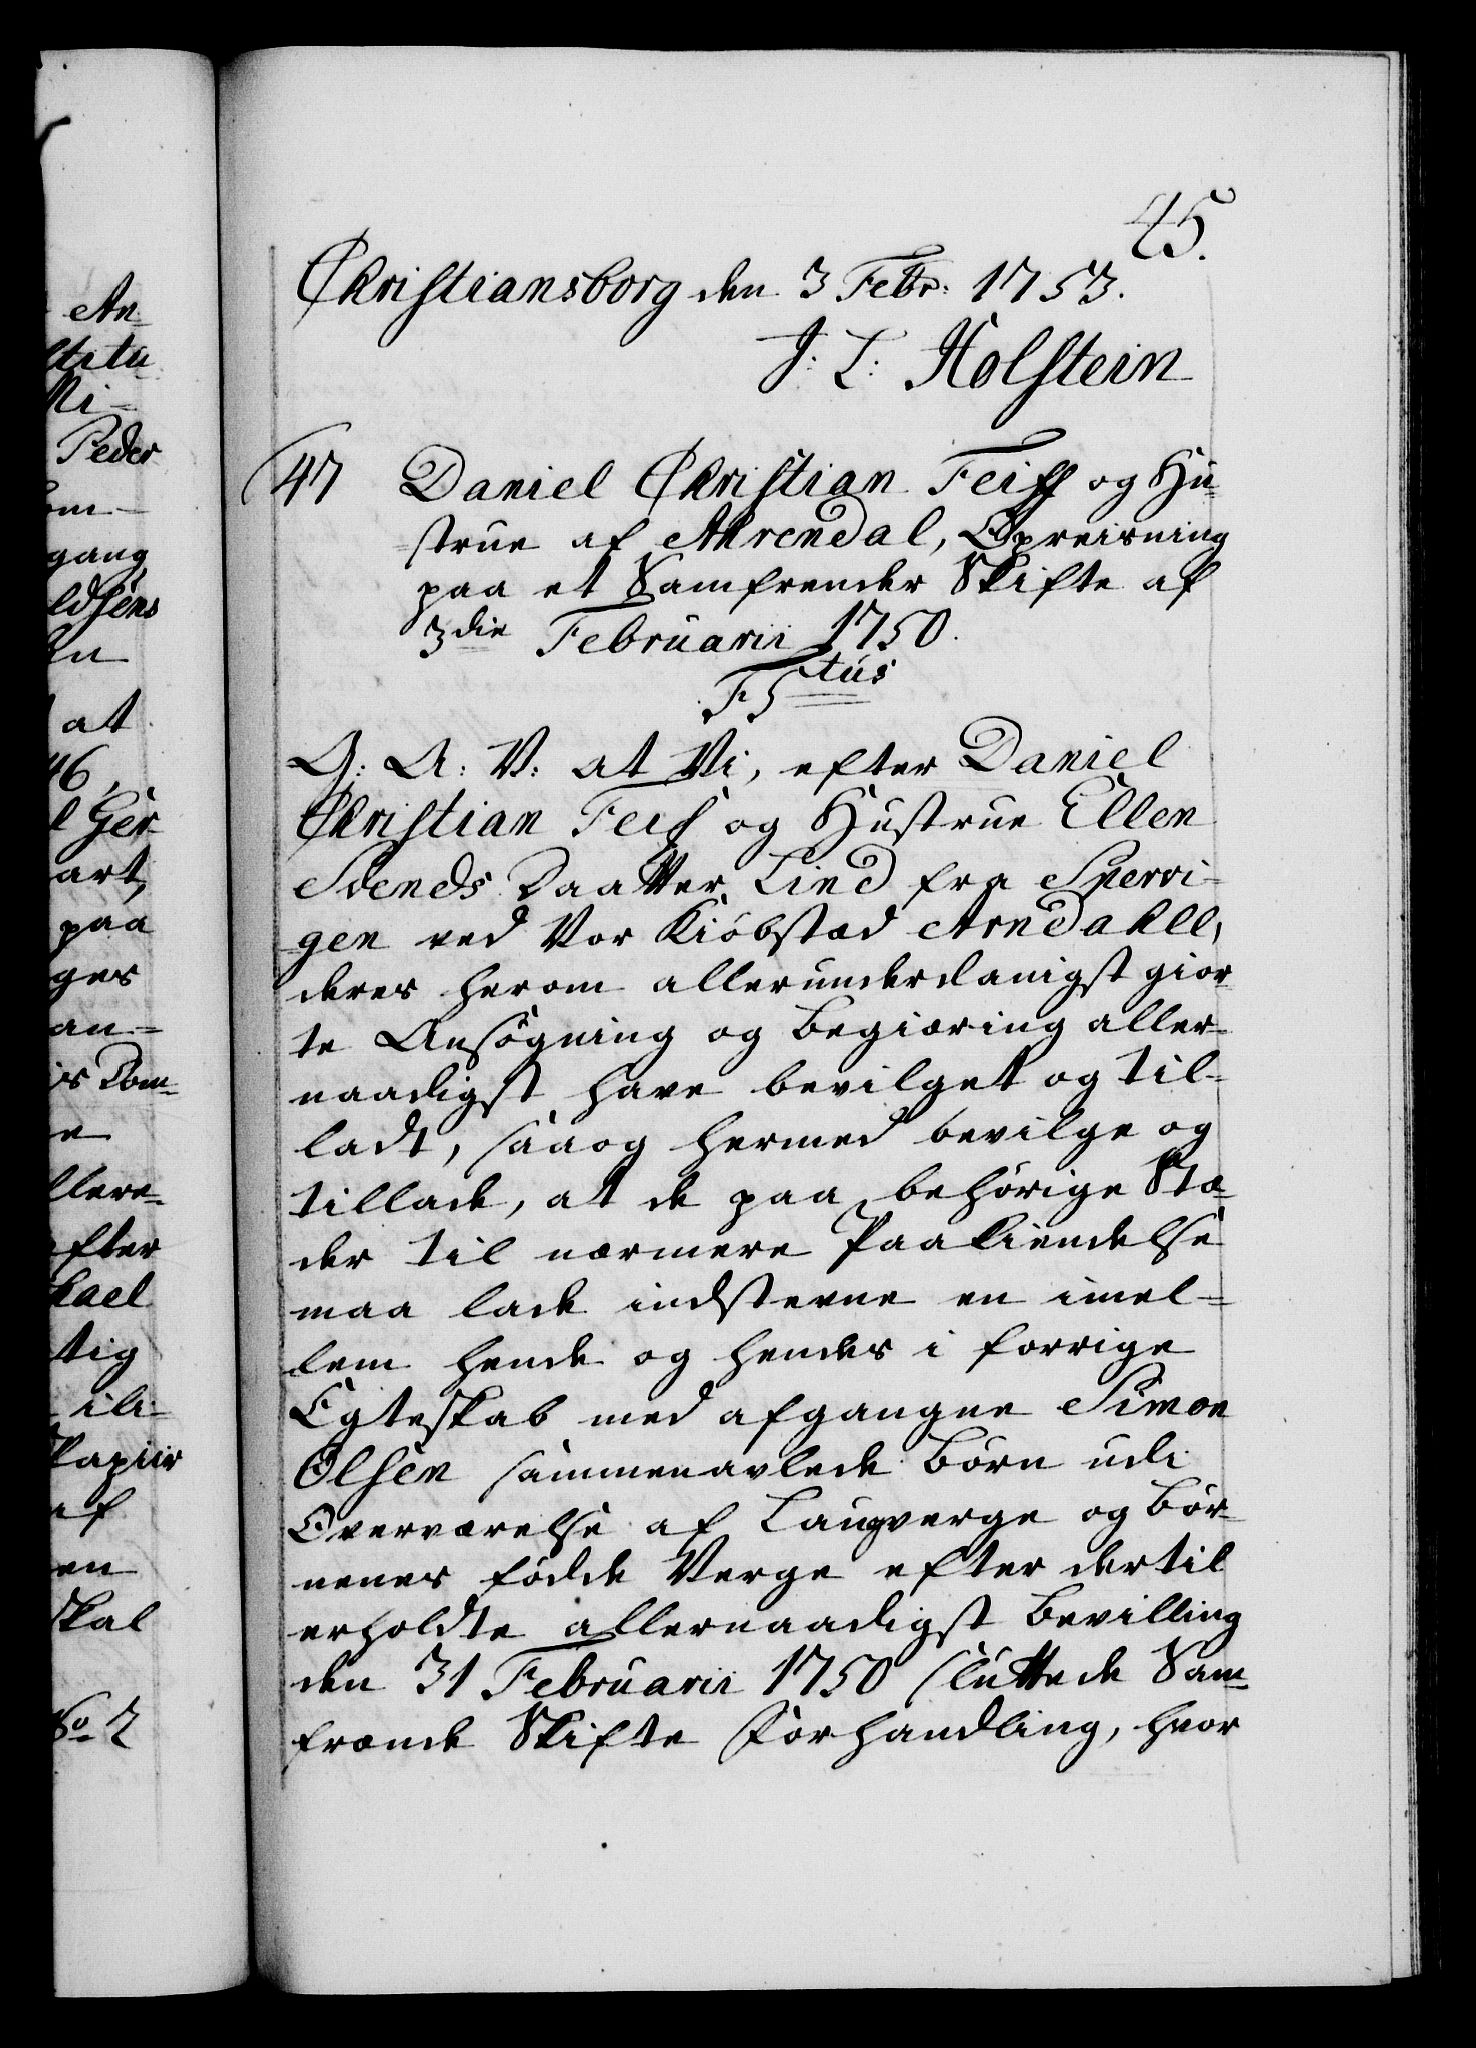 45.
Christiansborg den 3 Febr: 1753.
J: L: Holstein
47 Daniel Christian Feiff og Hu-
strue af Ahrendal, Opreisning
paa et Samfrender Skifte af
3die Februarii 1750.
F5tus
G: A: V: at Vi, efter Daniel
Christian Feif og Hustrue Ellen
Svends Daatter Lind fra Spervi-
gen ved Vor Kiöbstæd Arndahll,
deres herom allerunderdanigst gior-
te Ansøgning og Begiæring aller-
naadigst have bevilget og til-
ladt, saa og hermed bevilge og
tillade, at de paa behørige Stæ-
der til nærmere Paakiendelse
maa lade indstevne en imel-
lem hende og hendes i forrige
Egteskab med afgangne Simon
Olsen sammenavlede Börn udi
Overværelse af Laugverge og Bör-
nenes fødde Verge efter dertil
erholdte allernaadigst Bevilling
den 31 Februarii 1750 sluttede Sam-
frænde Skifte Forhandling, hvor
An-
stitu
Mi-
Peder
gang
ldsens
at
46,
Ger-
art,
paa
ges
an-
Com-
e
llere-
efter
hael
tig
ili-
Papiir
af
en
skal
No 2